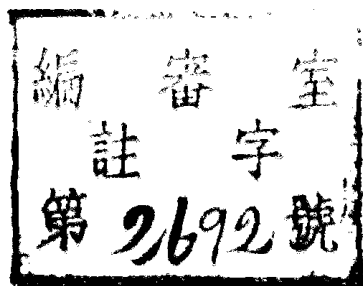 編審室
註字
第2692號